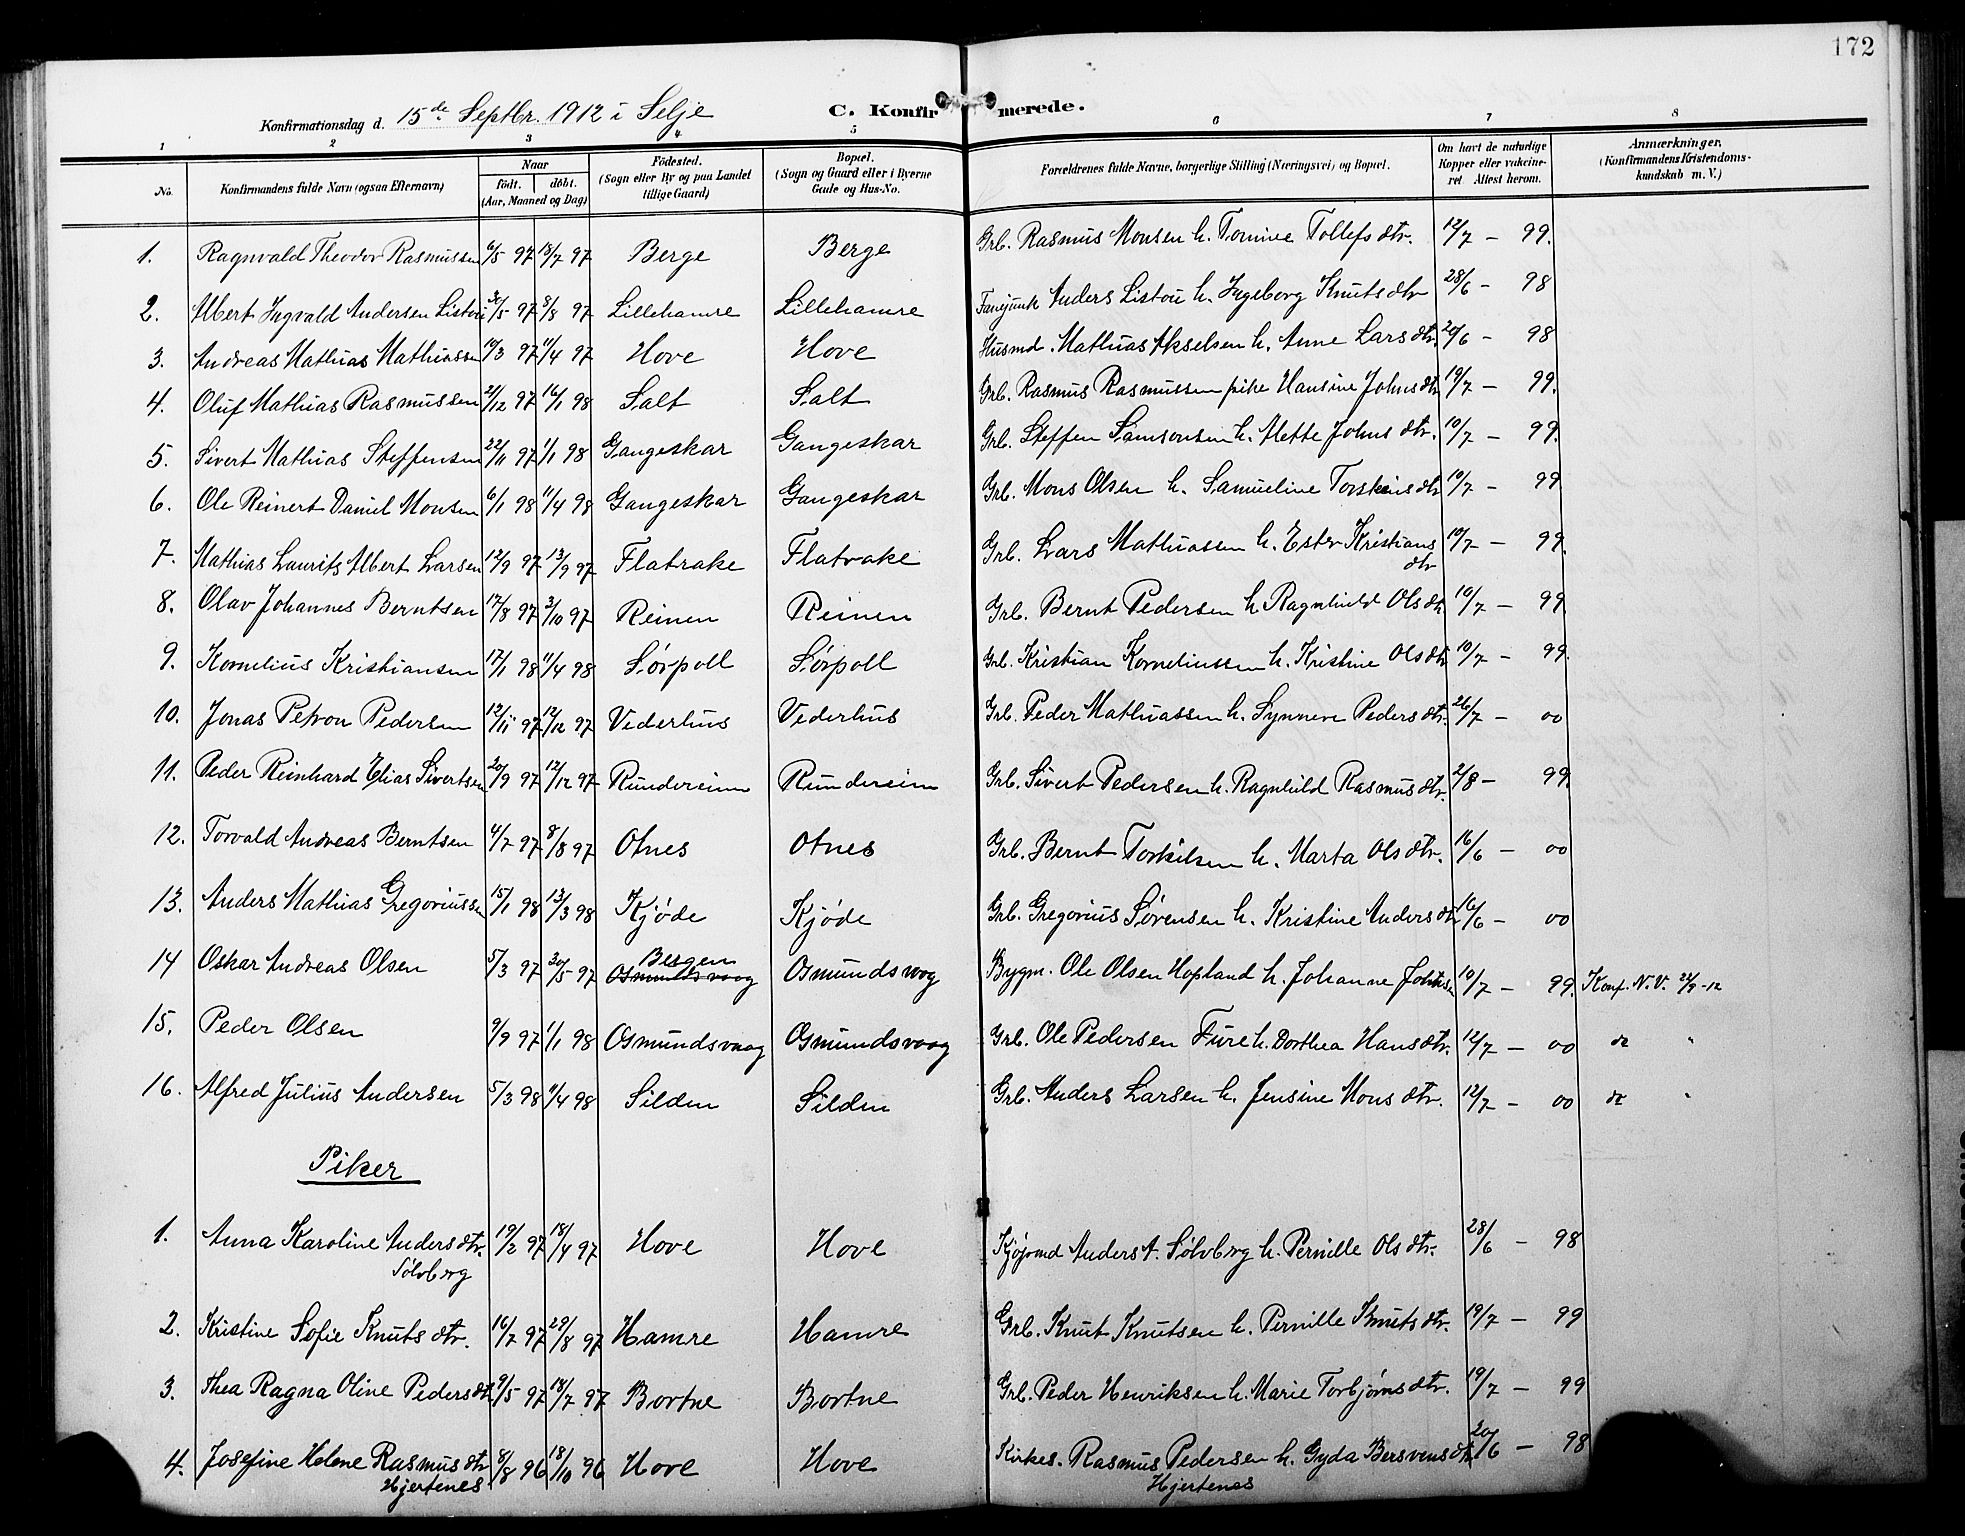 172
Konfirmationsdag d. 15de Septbr. 1912 i Selje C. Konfirmerede.
1 2 3 4 5 6 7 8
No. Konfirmandens fulde Navn (ogsaa Efternavn) Naar født. døbt. (Aar, Maaned og Dag) Fødested. (Sogn eller By og paa Landet tillige Gaard) Bopæl. (Sogn og Gaard eller i Byerne Gade og Hus-No. Forældrenes fulde Navne, borgerlige Stilling (Næringsvei) og Bopæl. Om havt de naturlige Kopper eller vakcineret Attest herom. Anmærkninger, (Konfirmandens Kristendomskundskab m. V.)
1. Ragnvald Theodor Rasmussen 6/5 97 18/7 97 Berge Berge Grb. Rasmus Monsen h. Tomine Tollefsdtr. 12/7 – 99.
2. Albert Ingvald Andersen Listou 30/5 97 8/8 97 Lillehamre Lillehamre Fanejunk Anders Listou h. Ingeborg Knutsdtr 28/6 – 98
3. Andreas Mathias Mathiassen 19/3 97 11/4 97 Hove Hove Husmd. Mathias Akselsen h. Anne Larsdtr. 20/6 – 98
4. Oluf Mathias Rasmussen 21/12 97 16/1 98 Salt Salt Grb. Rasmus Rasmussen pike Hansine Johnsdtr 19/7 – 99.
5. Sivert Mathias Steffensen 22/11 97 1/1 98 Gangeskar Gangeskar Grb. Steffen Samsonsen h. Mette Johnsdtr. 10/7 – 99.
6. Ole Reinert Daniel Monsen 6/1 98 11/4 98 Gangeskar Gangeskar Grb. Mons Olsen h. Samueline Torsteinsdtr 10/7 – 99
7. Mathias Laurits Albert Larsen 12/9 97 13/9 97 Flatrake Flatrake Grb. Lars Mathiassen h. Ester Kristians
dtr 10/7 – 99.
8. Olav Johannes Berntsen 17/8 97 3/10 97 Reinen Reinen Grb. Bernt Pedersen h. Ragnhild Olsdtr 10/7 – 99
9. Kornelius Kristiansen 17/1 98 11/4 98 Sørpoll Sørpoll Grb. Kristian Korneliussen h. Kristine Olsdtr 10/7 – 99.
10. Jonas Petron Pedersen 12/11 97 12/12 97 Vederhus Vederhus Grb. Peder Mathiassen h. Synneve Pedersdtr. 26/7 – 00
11. Peder Reinhard Elias Sivertsen 20/9 97 12/12 97 Rundereim Rundereim Grb. Sivert Pedersen h. Ragnhild Rasmusdtr. 2/8 – 99.
12. Torvald Andreas Berntsen 4/7 97 8/8 97 Otnes Otnes Grb. Bernt Torkilsen h. Marta Olsdtr. 16/6 – 00
13. Anders Mathias Gregoriussen 15/1 98 13/3 98 Kjøde Kjøde Grb. Gregorius Sørensen h. Kristine Andersdtr 16/6 – 00
14 Oskar Andreas Olsen 5/3 97 30/5 97 Bergen Osmundsvaag Osmundsvog Bygm. Ole Olsen Hopland h. Johanne 10/7 – 99. Konf. N.V. 22/9 -12
15. Peder Olsen 9/9 97 1/1 98 Osmundsvaag Osmundsvaag Grb. Ole Pedersen Fure h. Dorthea Hansdtr. 12/7 – 00 do "
16. Alfred Julius Andersen 5/3 98 11/4 98 Silden Silden Grb. Anders Larsen h. Jensine Monsdtr. 12/7 – 00 do "
Piker
1. Anna Karoline Andersdtr. 19/2 97 18/4 97 Hove Hove Kjøpmd Anders A. Sølvberg h. Pernille Olsdtr. 28/6 – 98
Sølvberg
2. Kristine Sofie Knutsdtr. 16/7 97 29/8 97 Hamre Hamre Grb. Knut Knutsen h. Pernille Knutsdtr. 19/7 – 99
3. Thea Ragna Oline Pedersdtr 9/5 97 18/7 97 Bortne Bortne Grb. Peder Henriksen h. Marie Torbjørnsdtr. 19/7 – 99
4. Josefine Helene Rasmusdtr 8/8 96 18/10 96 Hove Hove Kirkes. Rasmus Pedersen h. Gyda Bersvensdtr 20/6 – 98
Hjertenes Hjertenes